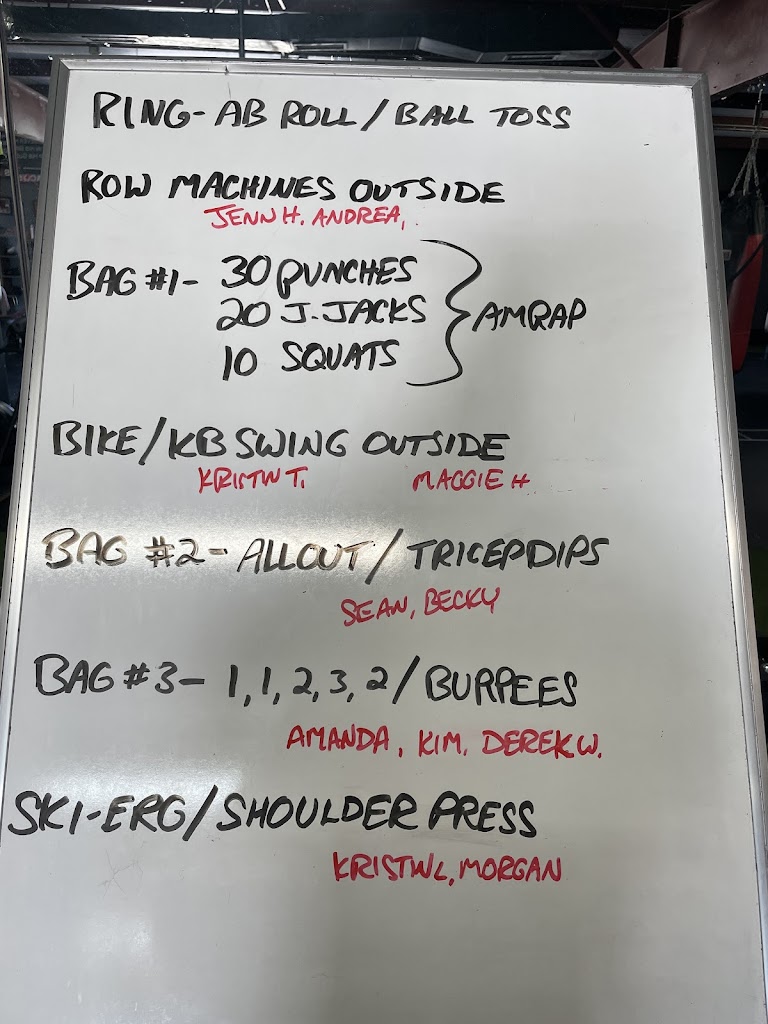 RING- AB ROLL / BALL TOSS
ROW MACHINES OUTSIDE
JENN H. ANDREA,
BAG #1- 30 PUNCHES
20 J. JACKS
10 SQUATS
AMRAP
BIKE/KB SWING OUTSIDE
KRISTIN T. MAGGIE H
BAG #2- ALLOUT / TRICEP DIPS
SEAN, BECKY
BAG #3- 1, 1, 2, 3, 2 / BURPEES
AMANDA, KIM, DEREK W.
SKI-ERG/SHOULDER PRESS
KRISTIN L, MORGAN